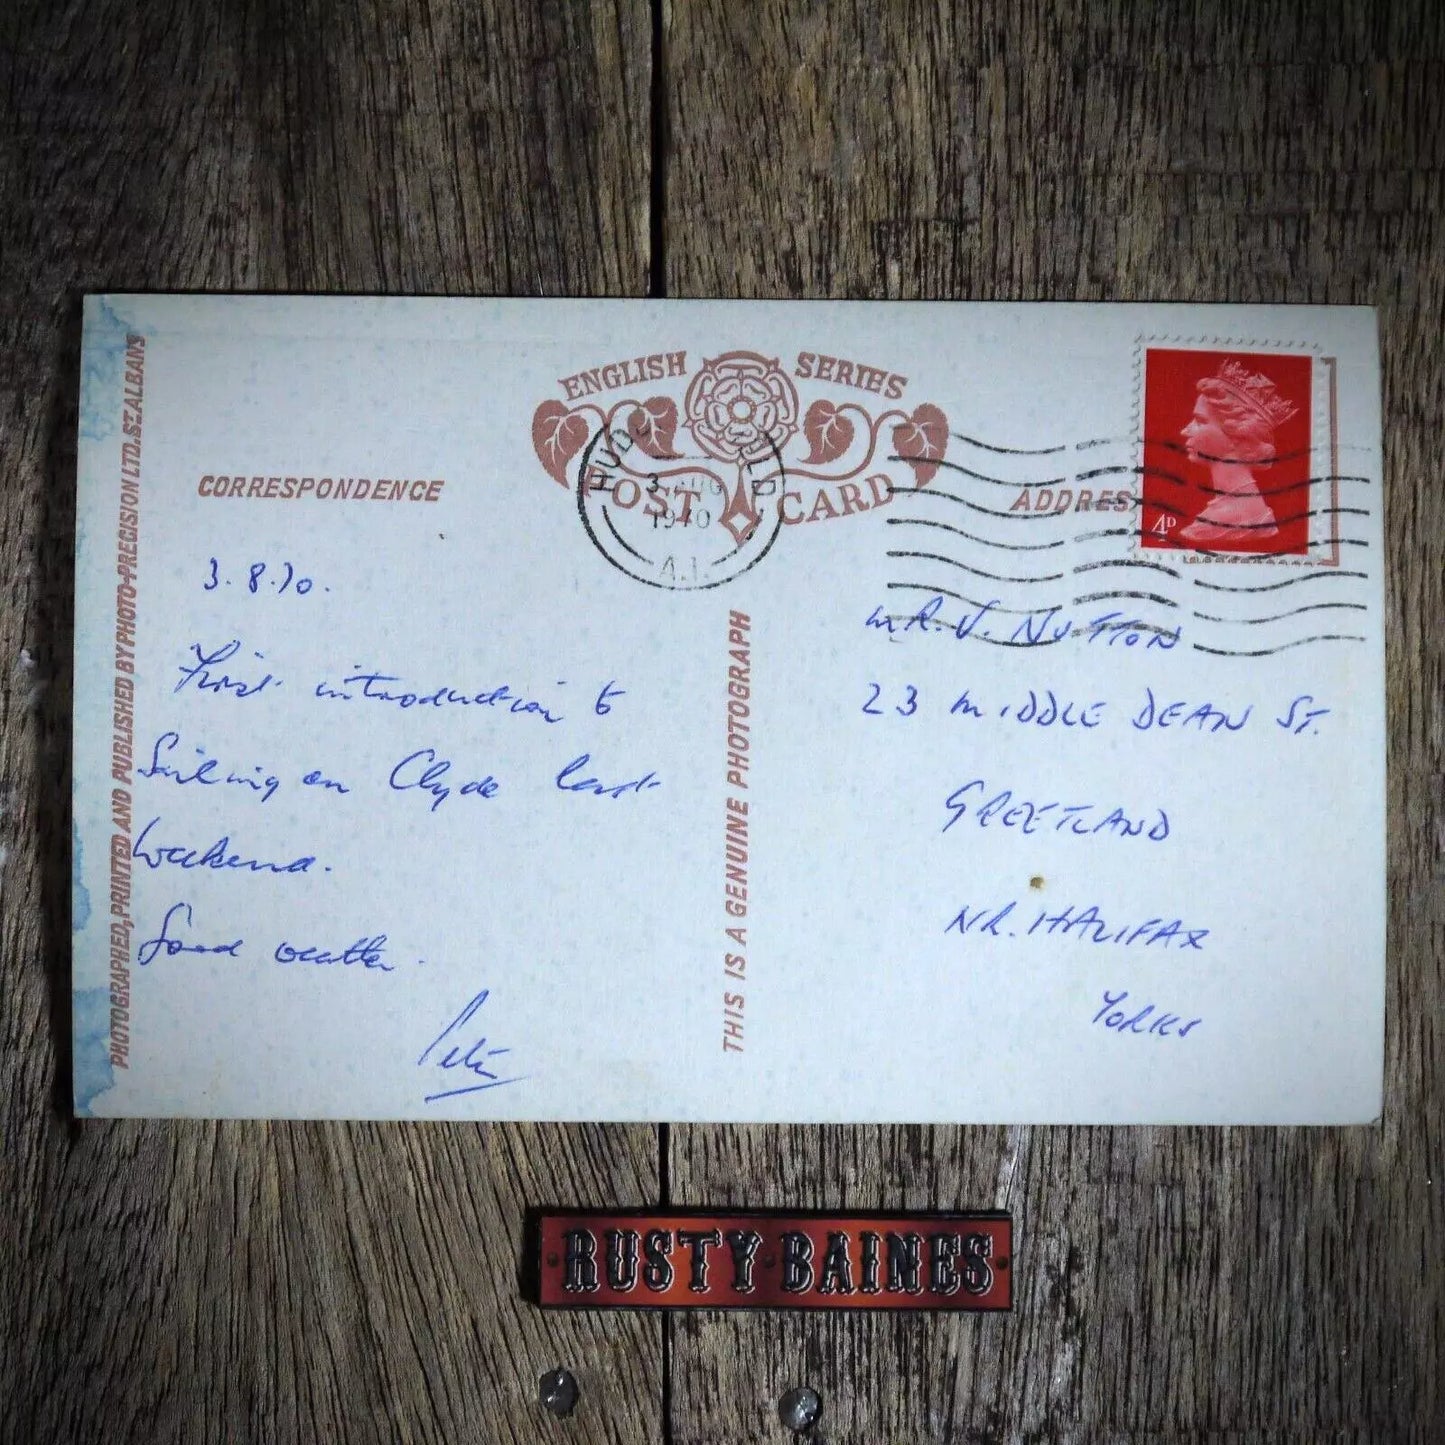 ENGLISH SERIES
POST CARD
CORRESPONDENCE
ADDRES
3 AUG
1970
A.I.
4D
3.8.70.
First introduction to
Sailing on Clyde last
weekend.
Good weather.
Peter
MR. V. NUTTON
23 MIDDLE DEAN ST.
GREETLAND
NR. HALIFAX
YORKS
PHOTOGRAPHED, PRINTED AND PUBLISHED BY PHOTO-PRECISION LTD. ST. ALBANS
THIS IS A GENUINE PHOTOGRAPH
RUSTY BAINES